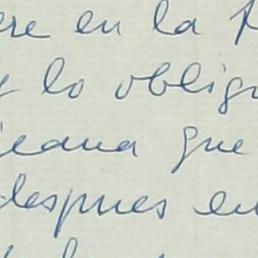 ere en la
y lo oblig
eana que
despues en